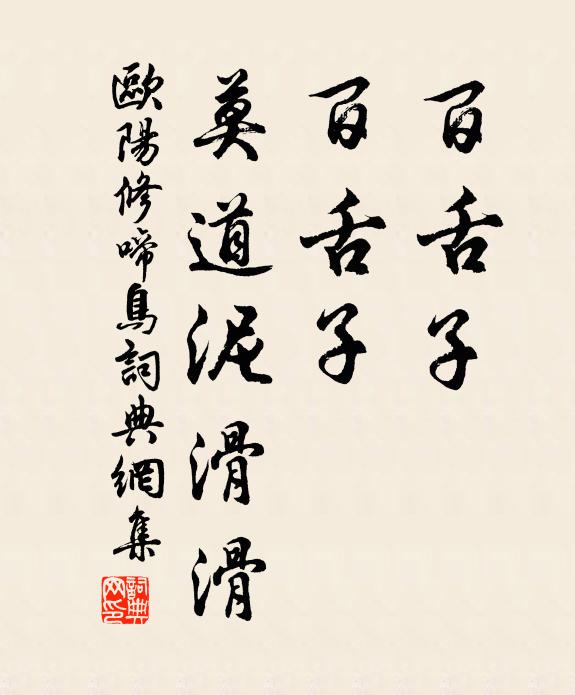 百舌子
百舌子
莫道泥滑滑
歐陽修啼鳥詞典網集
詞典網印